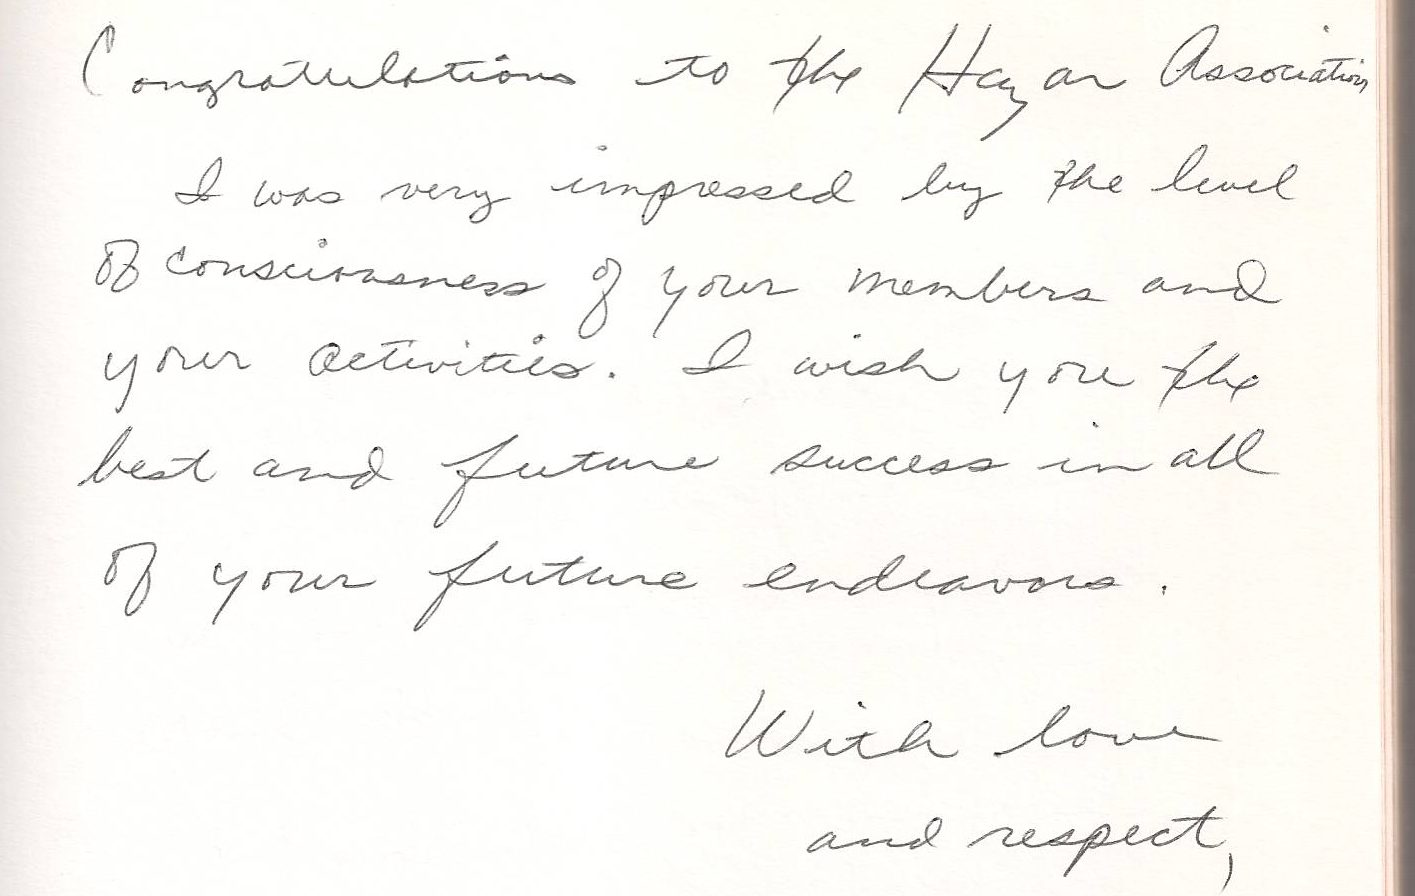 Congratulations to the Hazar Association
I was very impressed by the level
of consciousness of your members and
your activities. I wish you the
best and future success in all
of your future endeavors.
With love
and respect,